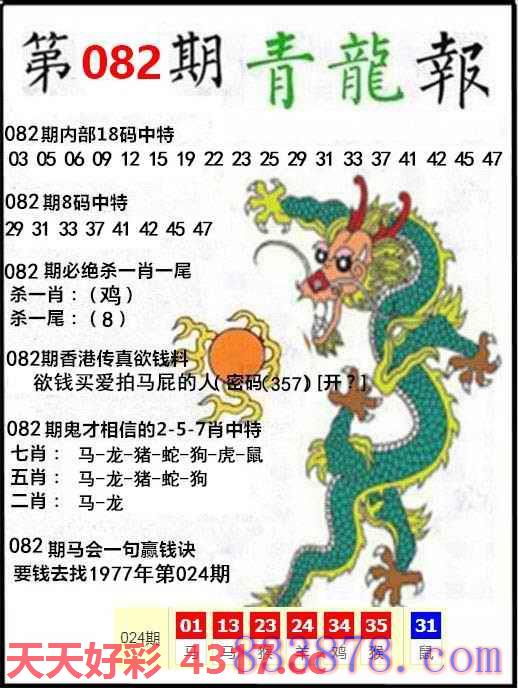 第082期青龍報
082期内部18码中特
03 05 06 09 12 15 19 22 23 25 29 31 33 37 41 42 45 47
082期8码中特
29 31 33 37 41 42 45 47
082期必绝杀一肖一尾
杀一肖：（鸡）
杀一尾：（8）
082期香港传真欲钱料
欲钱买爱拍马屁的人（密码（357）[开？]
082期鬼才相信的2-5-7肖中特
七肖： 马-龙-猪-蛇-狗-虎-鼠
五肖： 马-龙-猪-蛇-狗
二肖： 马-龙
082期马会一句赢钱诀
要钱去找1977年第024期
024期 01 13 23 24 34 35 31
马 马 猴 羊 鸡 猴 鼠
天天好彩 4317.cc
853878.com